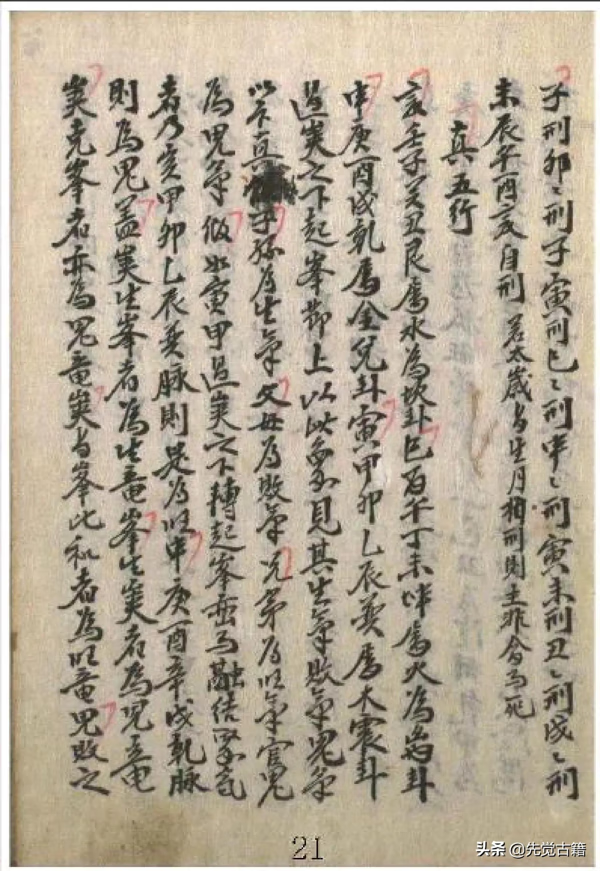 子刑卯〻刑子寅刑巳〻刑申〻刑寅未刑丑〻刑戌〻刑
未辰午酉亥自刑 若太歲與生月相刑則主非命而死
真五行
亥壬子癸丑艮屬水為坎卦巳丙午丁未坤屬火為离卦
申庚酉戌乾屬金兌卦寅甲卯乙辰巽屬木震卦
過峽之下起峯節上以此象見其生氣敗氣鬼氣
以下真子孫為生氣父母為敗氣兄弟為旺氣官鬼
為鬼氣假如寅甲過峽之下轉起峯巒而融結
者乃寅甲卯乙辰巽脉則是為旺申庚酉辛戌乾脉
則為鬼蓋峽生峯者為生竜峯生峽者為
峽克峯者亦為鬼竜峽與峯比和者為旺竜鬼敗之
21
头条 @先觉古籍